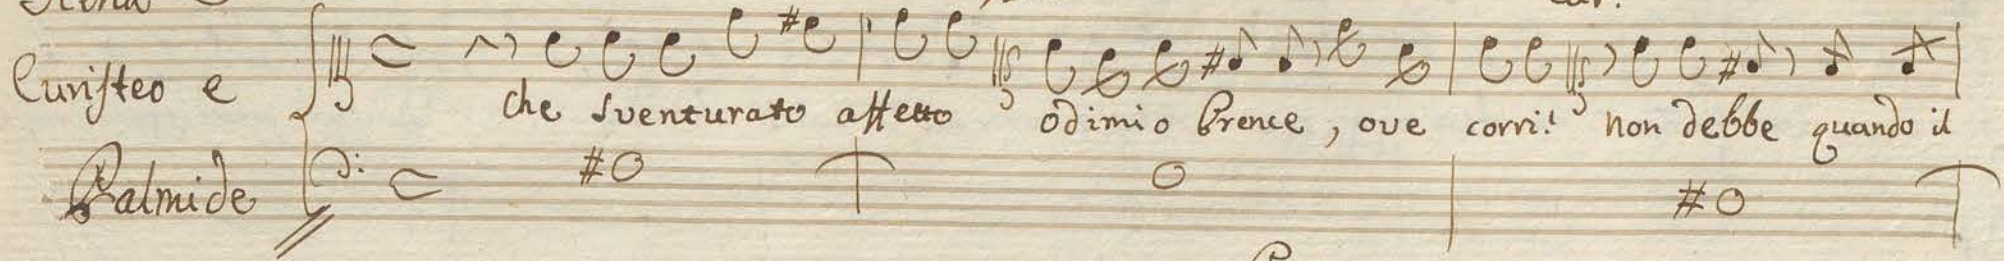 Euristeo e
che sventurato affetto odi mio Prence, ove corri! non debbe quando il
Palmide